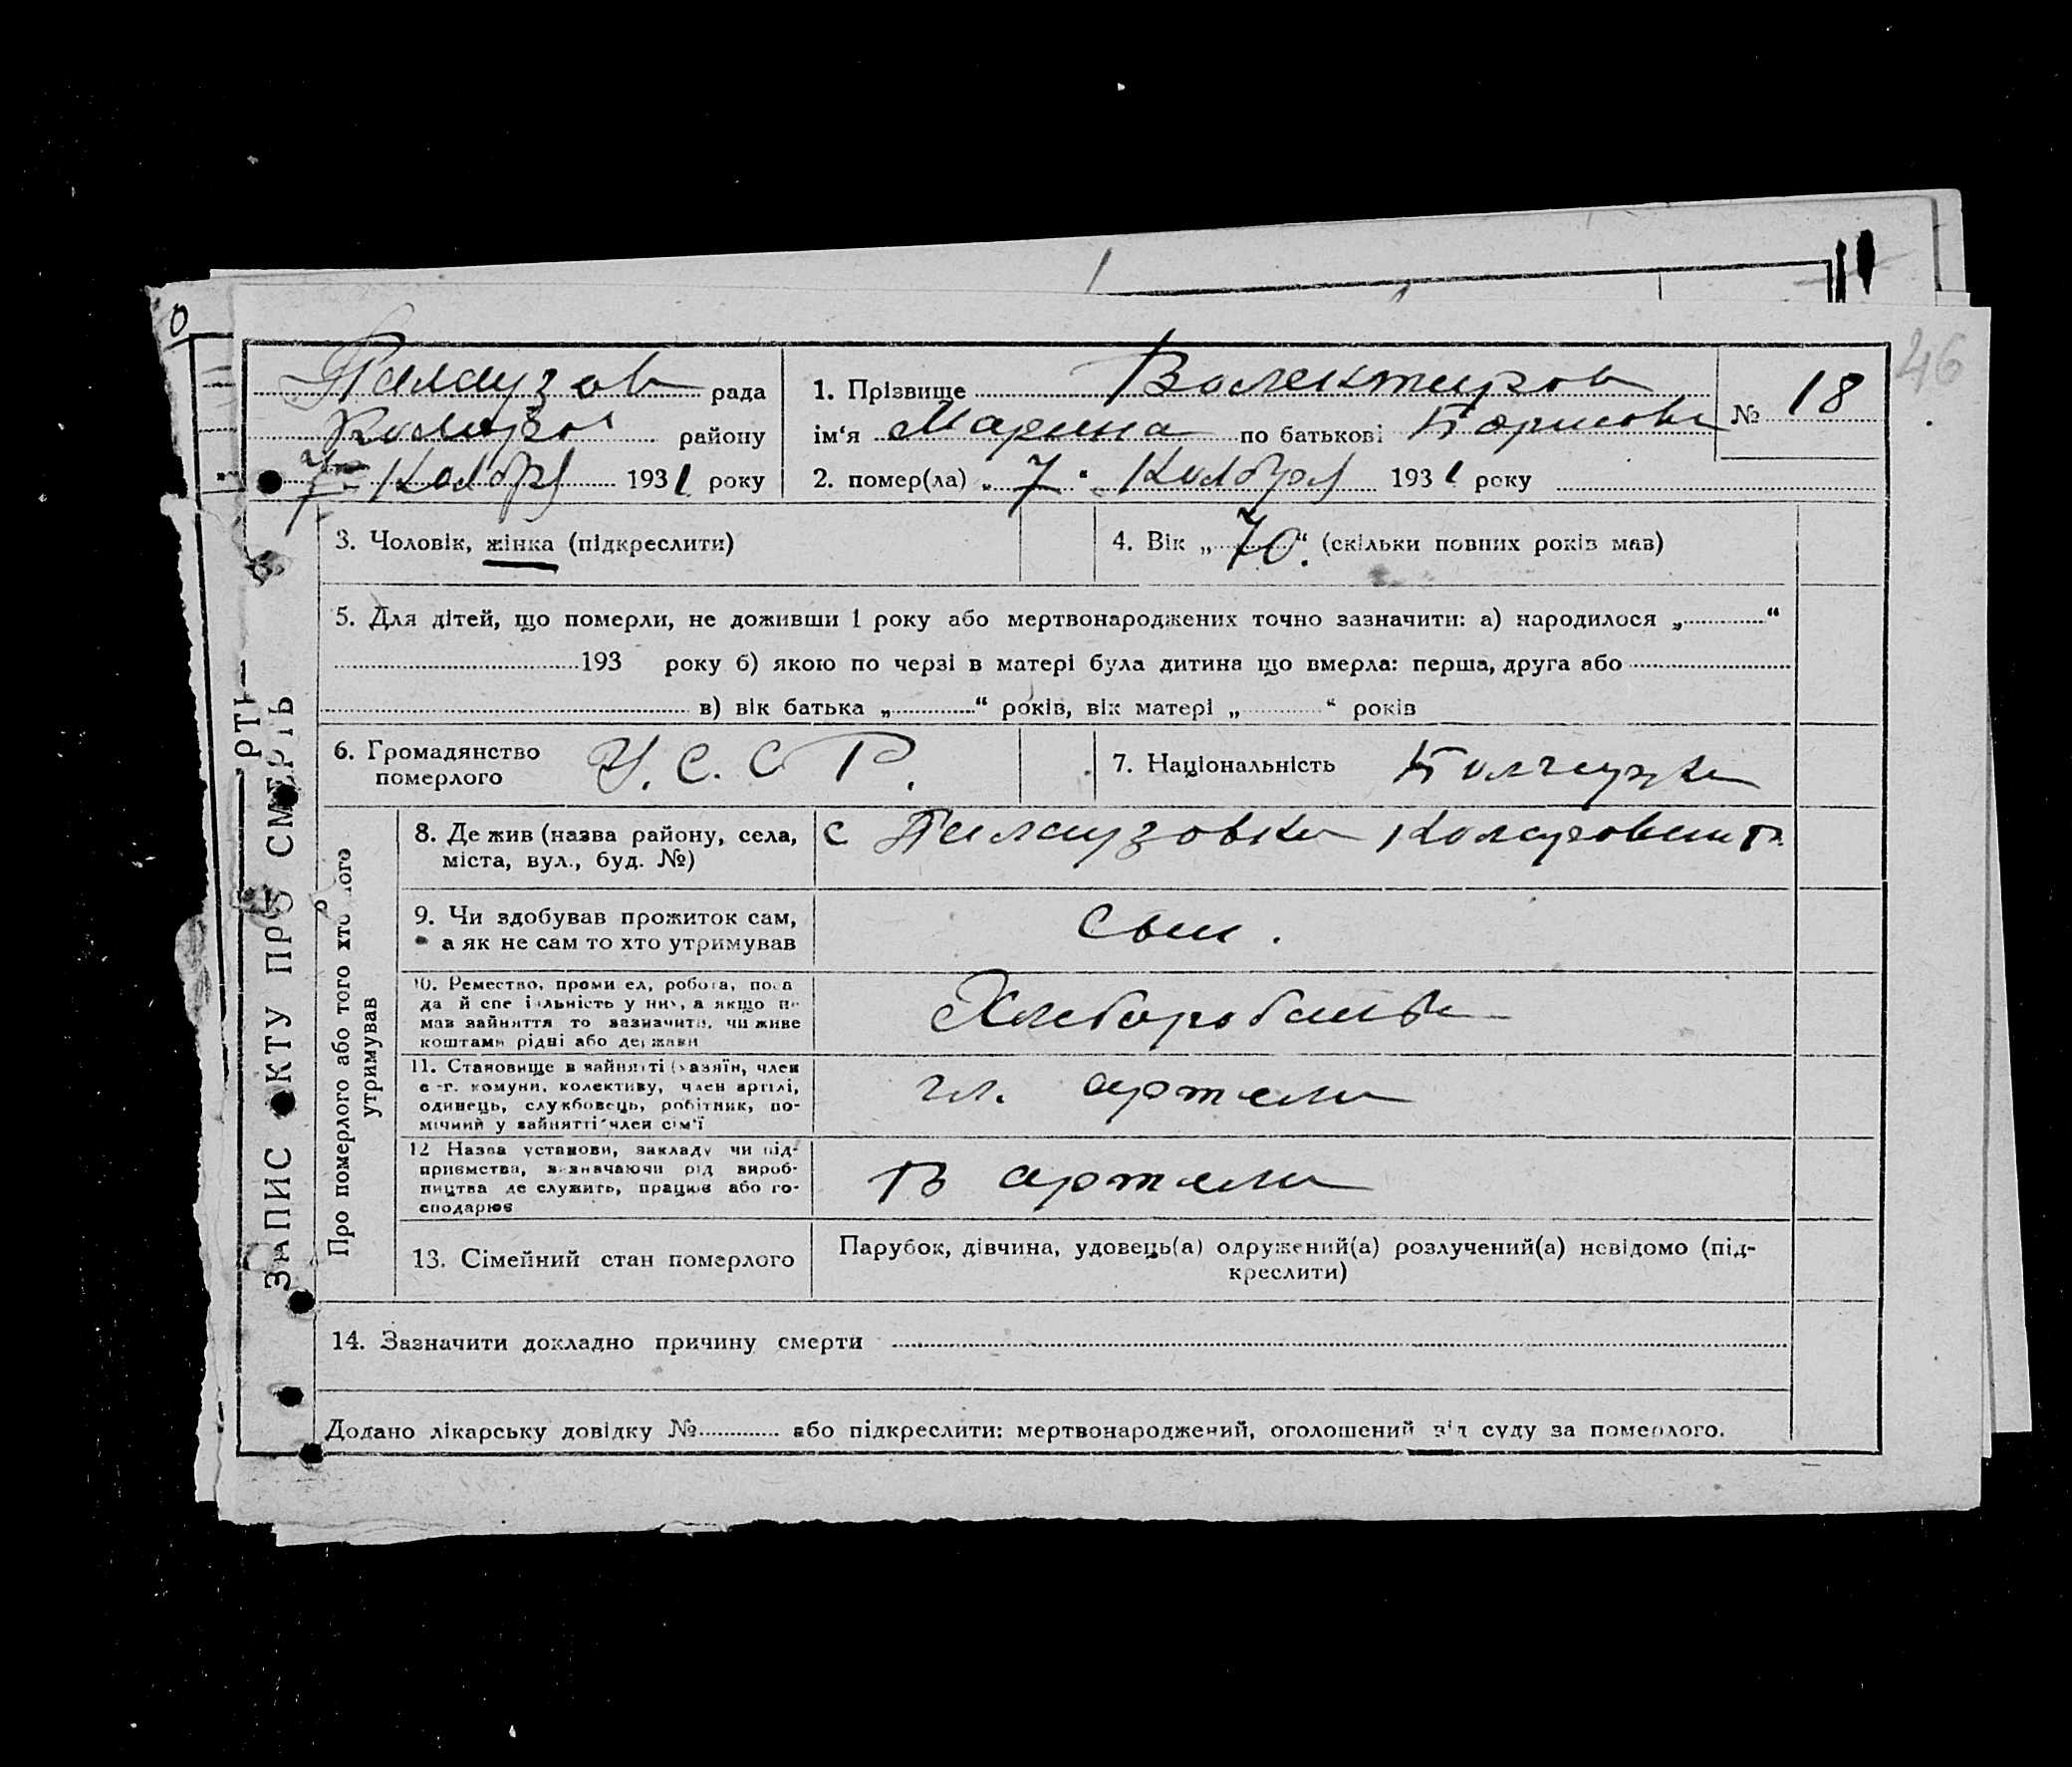 46
Палаузов рада
Коларов району
7 Ноября 1931 року
1. Прізвище
№ 18
ім‘я Марина по батькові Борисовн
2. помер(ла) „7“ Ноября 1931 року
3. Чоловік, жінка (підкреслити)
4. Вік „70“ (скільки повних років мав)
5. Для дітей, що померли, не доживши 1 року або мертвонароджених точно зазначити: а) народилося „............“
193 року б) якою по черзі в матері була дитина що вмерла: перша, друга або
в) вік батька „............“ років, вік матері „............“ років
6. Громадянство
померлого
У. С. С Р.
7. Національність Болгарка
ЗАПИС АКТУ ПРО СМЕРТЬ
Про померлого або того хто його
утримував
8. Де жив (назва району, села,
міста, вул., буд. №)
с Палаузовка Коларовский
9. Чи здобував прожиток сам,
а як не сам то хто утримував
сын.
10. Ремество, промисел, робота, поса
да й спеціальність у них, а якщо не
мав зайняття то зазначити, чи живе
коштами рідні або держави
11. Становище в зайнятті (хазяїн, член
с-г. комуни, колективу, член артілі,
одинець, службовець, робітник, по-
мічний у зайнятті член сім‘ї
чл. артели
12 Назва установи, закладу чи під-
приємства, зазначаючи рід вироб-
ництва де служить, працює або го-
сподарює
В артели
13. Сімейний стан померлого
Парубок, дівчина, удовець(а) одружений(а) розлучений(а) невідомо (під-
креслити)
14. Зазначити докладно причину смерти
Додано лікарську довідку №............ або підкреслити: мертвонароджений, оголошений від суду за померлого.